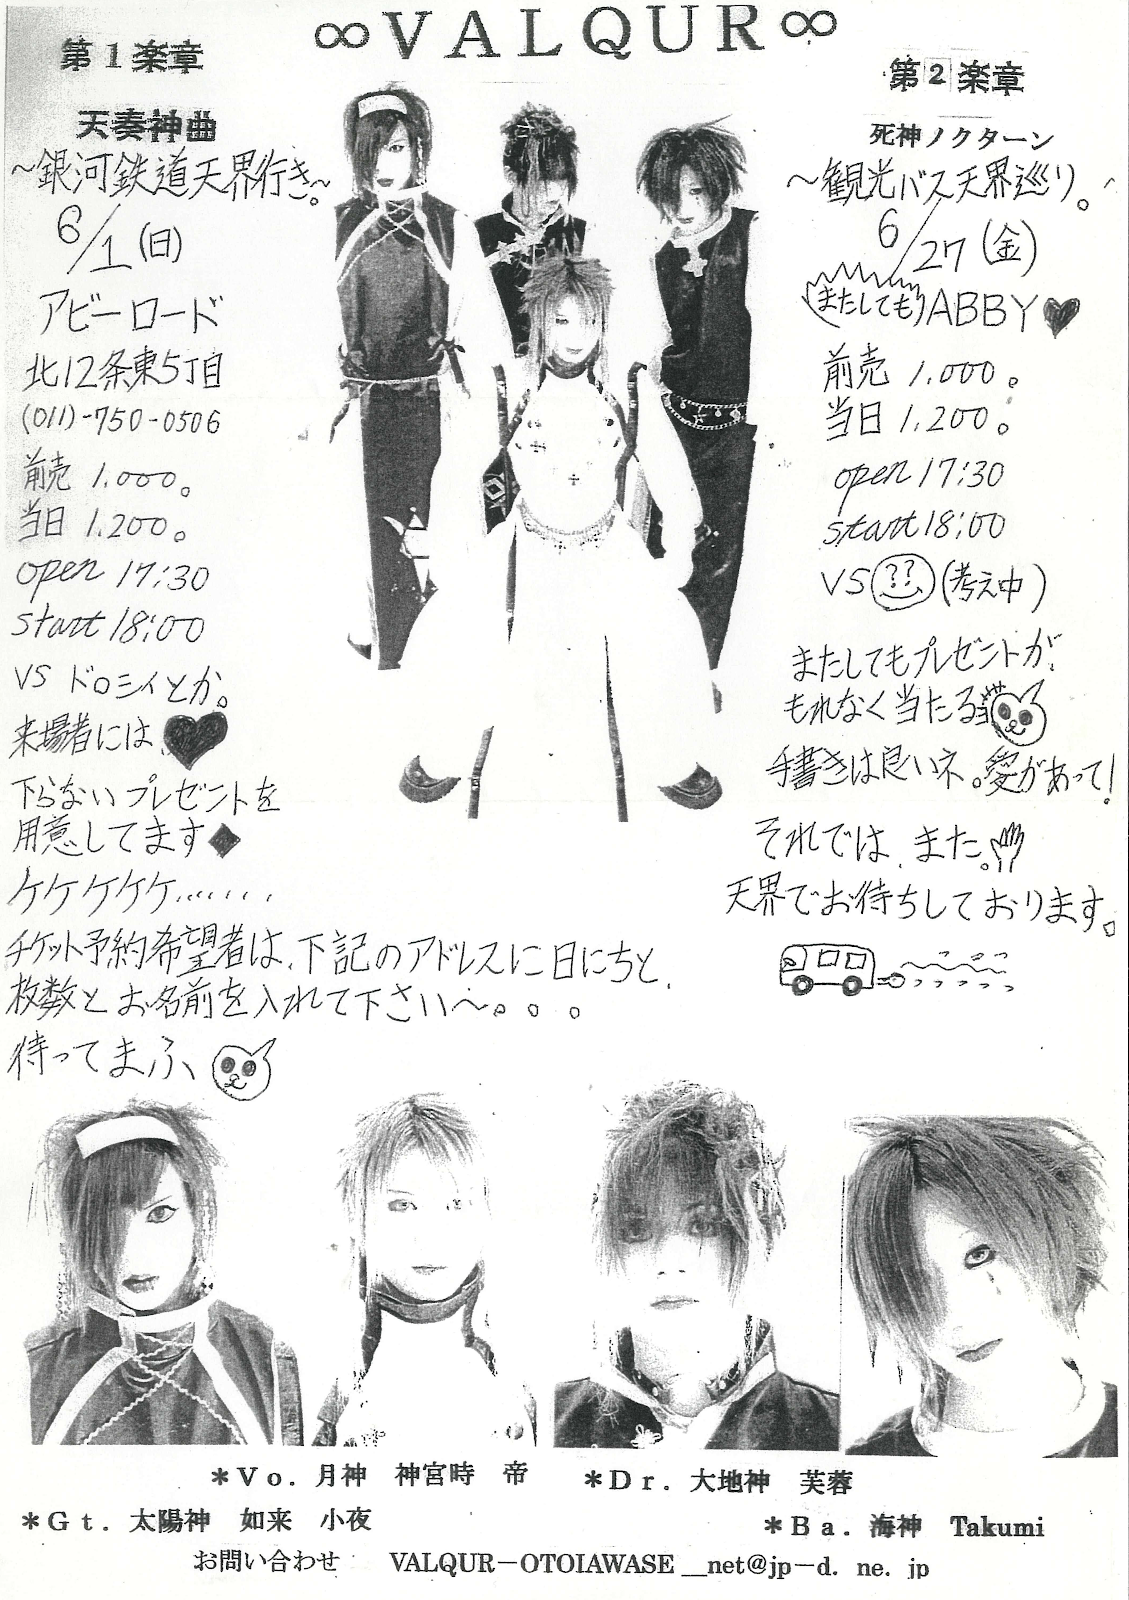 ∞VALQUR∞
第1楽章
天奏神曲
～銀河鉄道天界行き。～
6/1(日)
アビーロード
北12条東5丁目
(011)-750-0506
前売 1.000。
当日 1.200。
open 17:30
start 18:00
VS ドロシィとか。
来場者には、♥
下らないプレゼントを
用意してます◆
ケケケケケ.......
チケット予約希望者は、下記のアドレスに日にちと、
枚数とお名前を入れて下さい～。。。
待ってまふ、
第2楽章
死神ノクターン
～観光バス天界巡り。～
6/27(金)
またしても ABBY♥
前売 1.000。
当日 1.200。
open 17:30
start 18:00
VS ?? (考え中)
またしてもプレゼントが、
もれなく当たるヨ
手書きは良いネ。愛があって!
それでは、また。
天界でお待ちしております。
＊Vo．月神 神宮時 帝
＊Dr．大地神 芙蓉
＊Gt．太陽神 如来 小夜
＊Ba．海神 Takumi
お問い合わせ VALQUR－OTOIAWASE＿net@jp－d. ne. jp